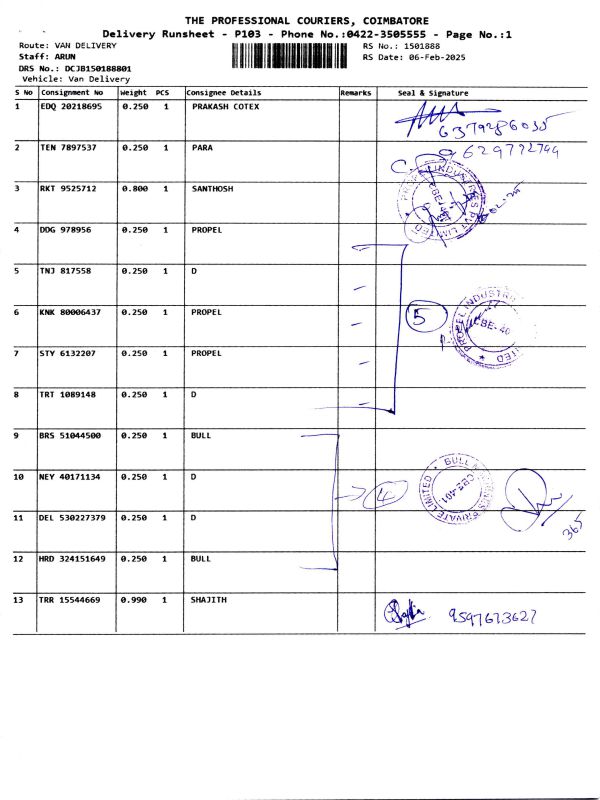 THE PROFESSIONAL COURIERS, COIMBATORE
Delivery Runsheet - P103 - Phone No.:0422-3505555 - Page No.:1
Route: VAN DELIVERY
RS No.: 1501888
Staff: ARUN
RS Date: 06-Feb-2025
DRS No.: DCJB150188801
Vehicle: Van Delivery
S No Consignment No Weight PCS Consignee Details Remarks Seal & Signature
1 EDQ 20218695 0.250 1 PRAKASH COTEX
6379286035
2 TEN 7897537 0.250 1 PARA
9629772744
3 RKT 9525712 0.800 1 SANTHOSH
PROPEL INDUSTRIES PVT LIMITED
4 DDG 978956 0.250 1 PROPEL
5 TNJ 817558 0.250 1 D
6 KNK 80006437 0.250 1 PROPEL
5
PROPEL INDUSTR
CBE-40
7 STY 6132207 0.250 1 PROPEL
8 TRT 1089148 0.250 1 D
9 BRS 51044500 0.250 1 BULL
10 NEY 40171134 0.250 1 D
4
BULL MACHINES PRIVATE LIMITED
CBE-401
11 DEL 530227379 0.250 1 D
365
12 HRD 324151649 0.250 1 BULL
13 TRR 15544669 0.990 1 SHAJITH
9597673627